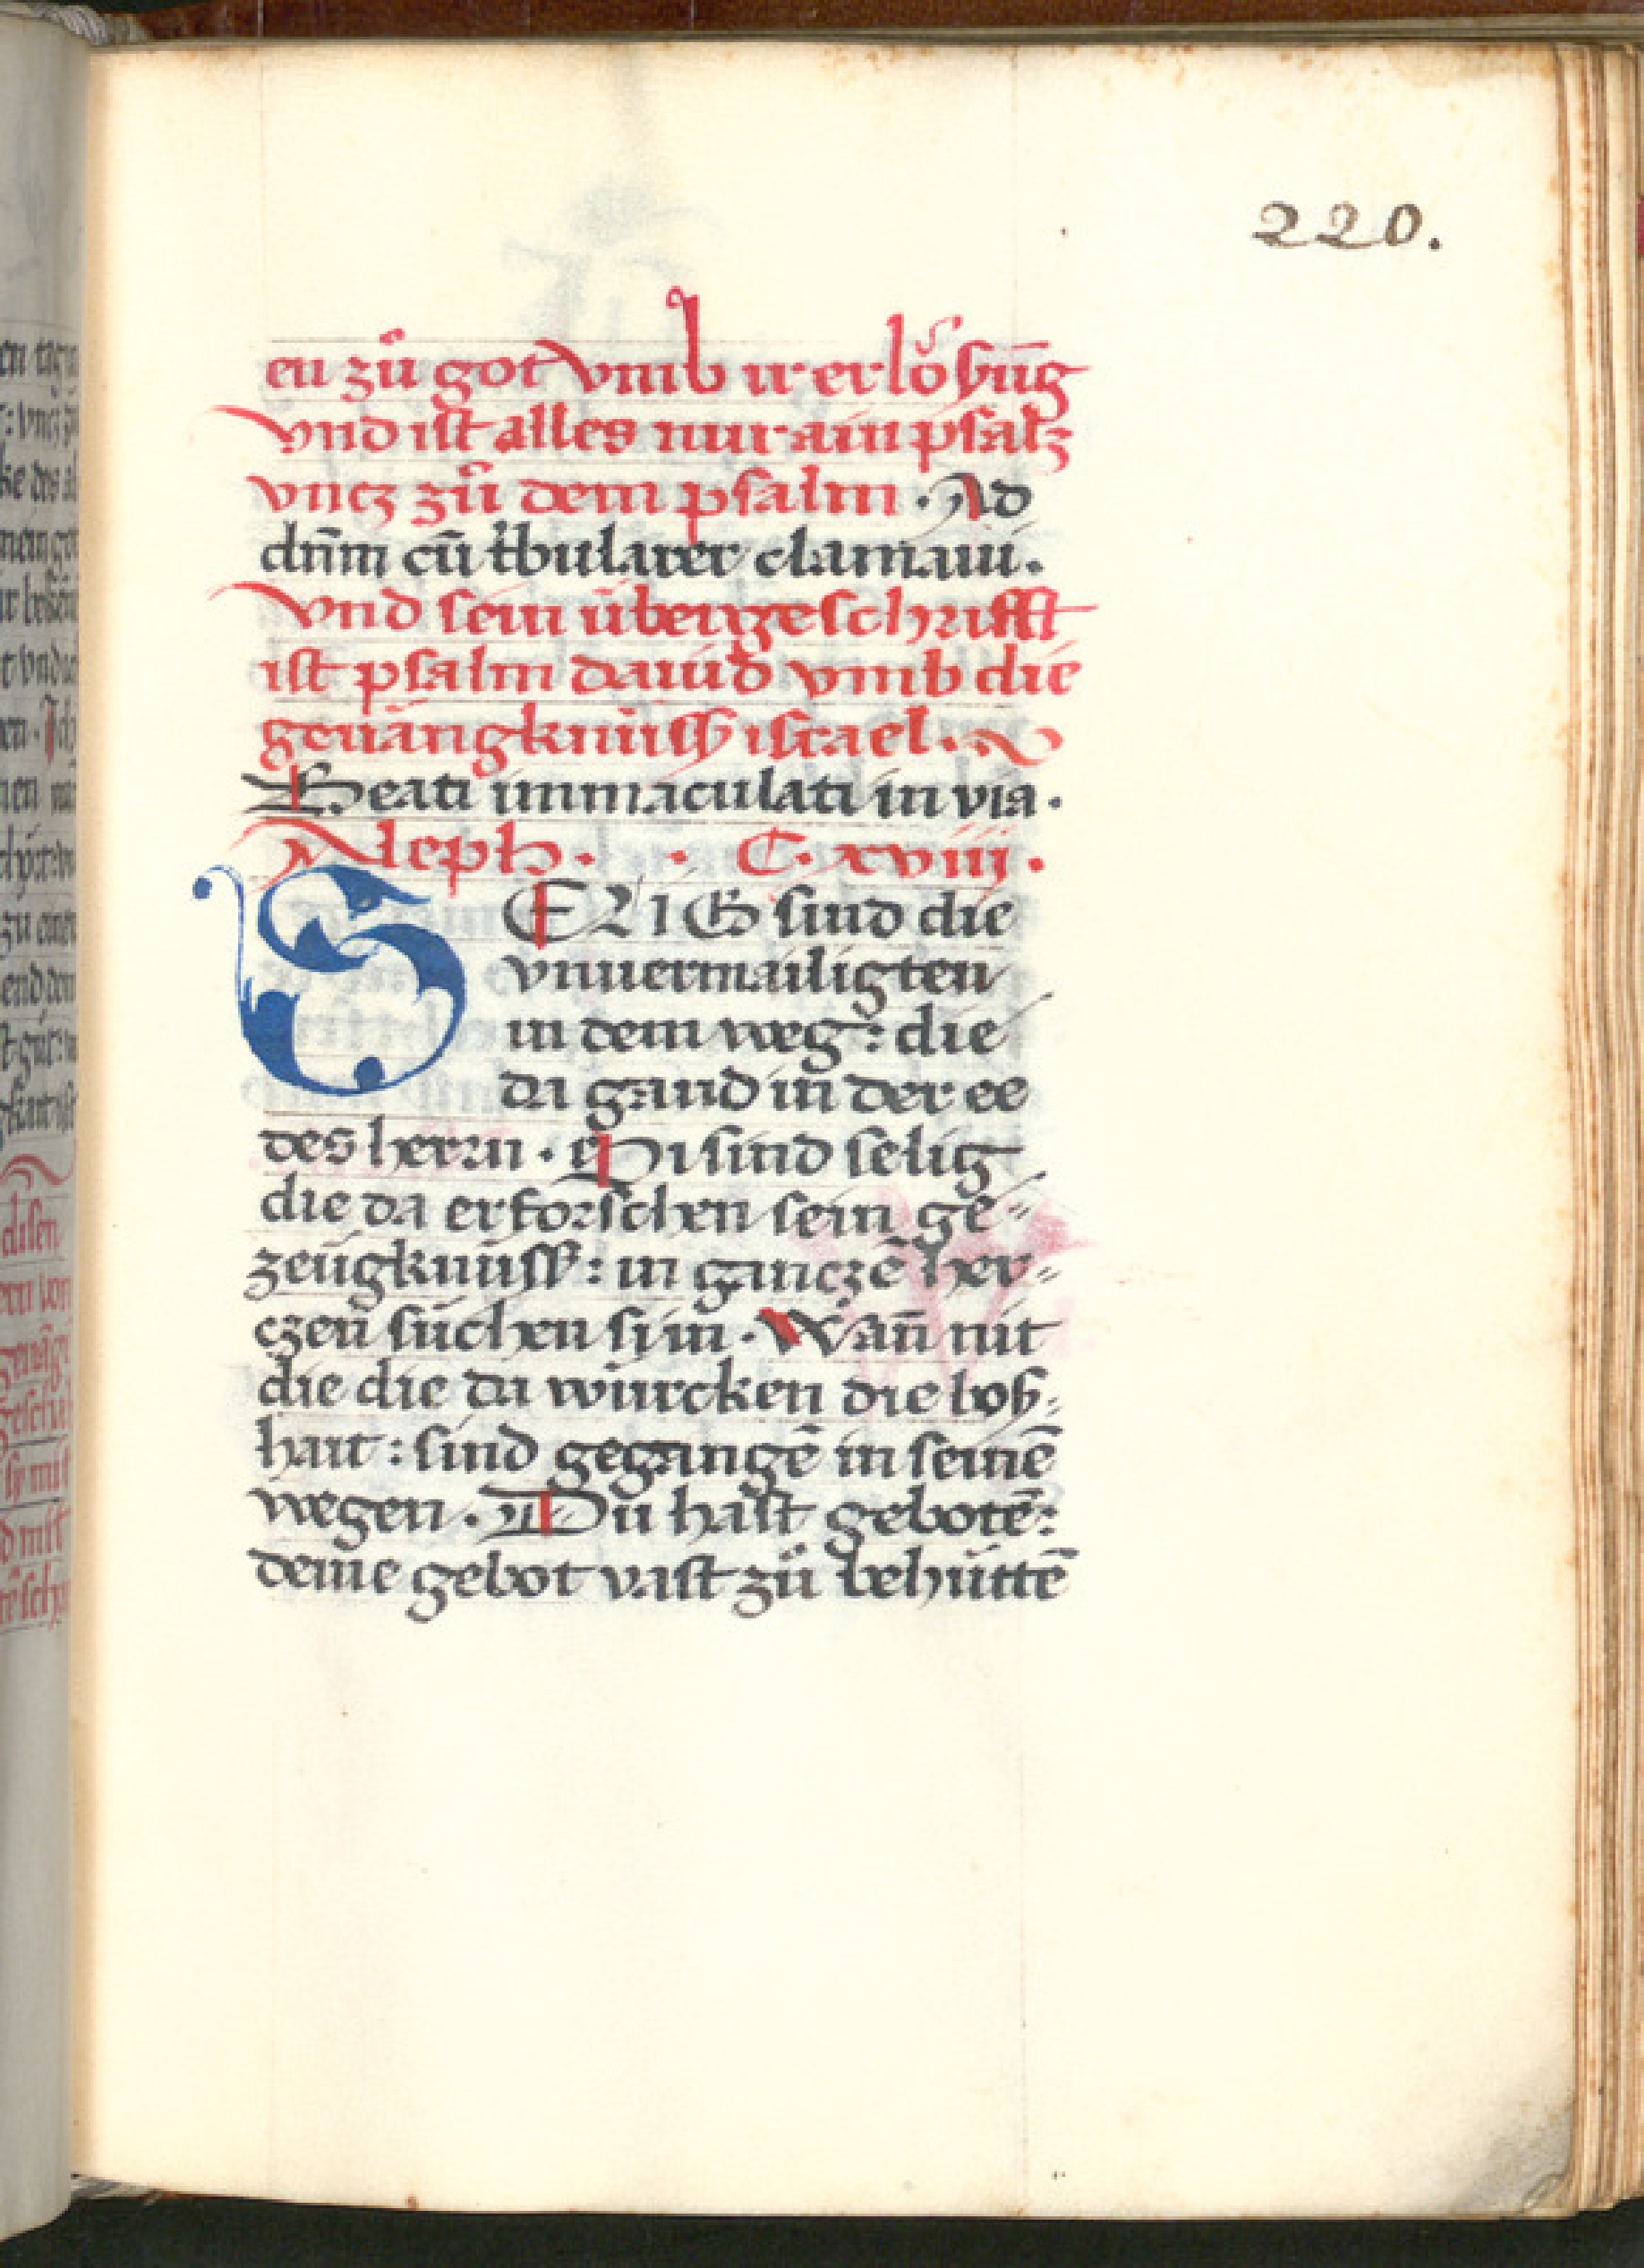 220.
en zů got vmb ir erlôsūg
vnd ist alles nur ain psalʒ
vncz zů dem psalm · Ad
dn̄m cū tͥbularer clamaui.
vnd sein übergeschrifft
ist psalm dauid vmb die
geuāngknüss israel.
Beati immaculati in via.
Aleph. · C. xviii.
SELIG sind die
vnuermailigten
in dem weg: die
da gand in der ee
des herrn · Si sind selig
die da erforschen sein ge⸗
zeügknüss: in ganczē her⸗
czen suchen si jn · Wan̄ nit
die die da würcken die bosz⸗
hait: sind gegangē in seinē
wegen · Du hast gebotē:
deine gebot vast zů behüttē